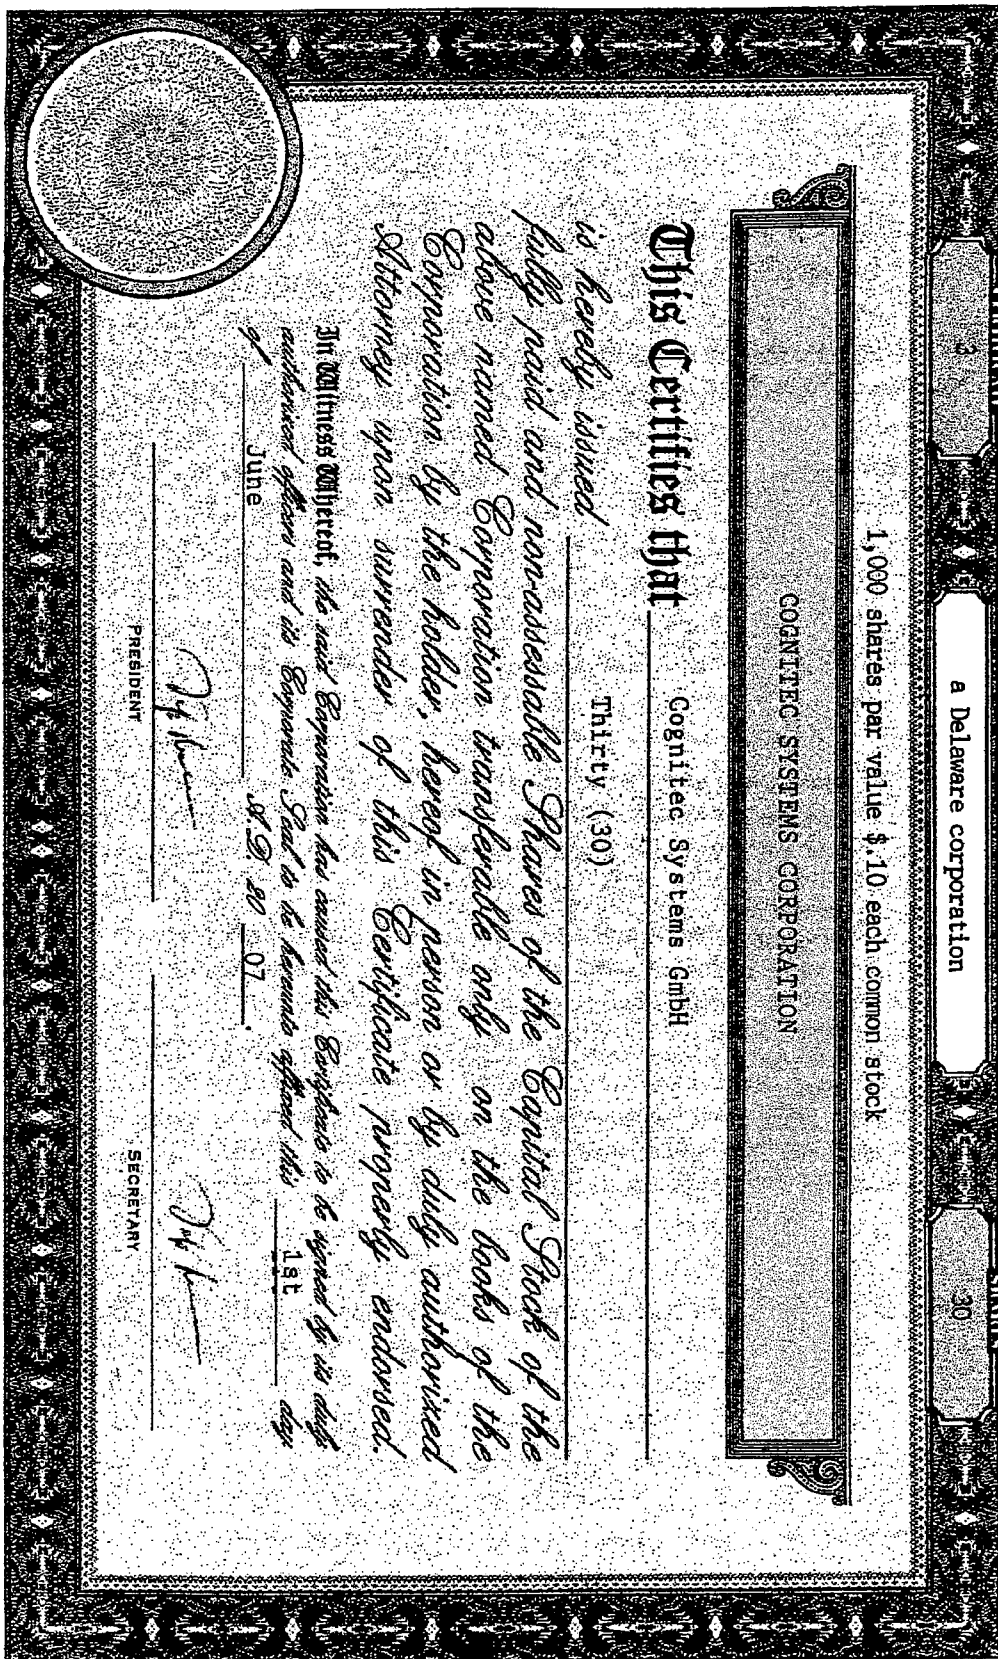 3
a Delaware corporation
30
1,000 shares par value $.10 each common stock
COGNITEC SYSTEMS CORPORATION
This Certifies that Cognitec Systems GmbH
is hereby issued Thirty (30)
fully paid and non-assessable Shares of the Capital Stock of the
above named Corporation transferable only on the books of the
Corporation by the holder, hereof in person or by duly authorized
Attorney upon surrender of this Certificate properly endorsed.
In Witness Whereof, the said Corporation has caused this Certificate to be signed by its duly
authorized officers and its Corporate Seal to be hereunto affixed this 1st day
of June A.D. 20 07.
PRESIDENT
SECRETARY